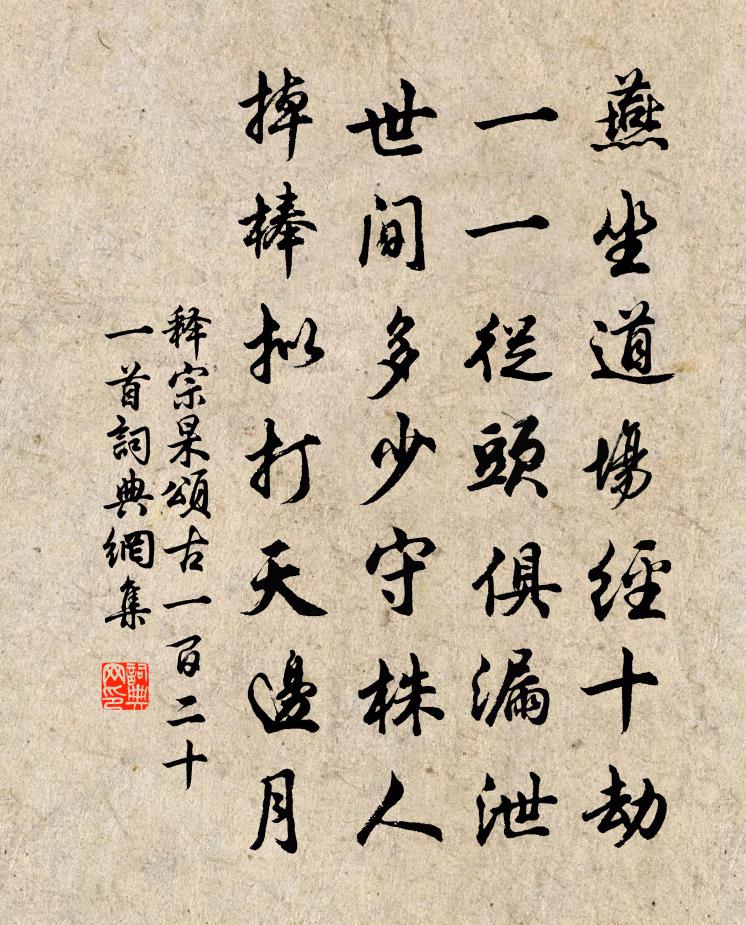 燕坐道場經十劫
一一從頭俱漏泄
世間多少守株人
掉棒拟打天邊月
释宗杲頌古一百二十
一首詞典網集
詞典
网印